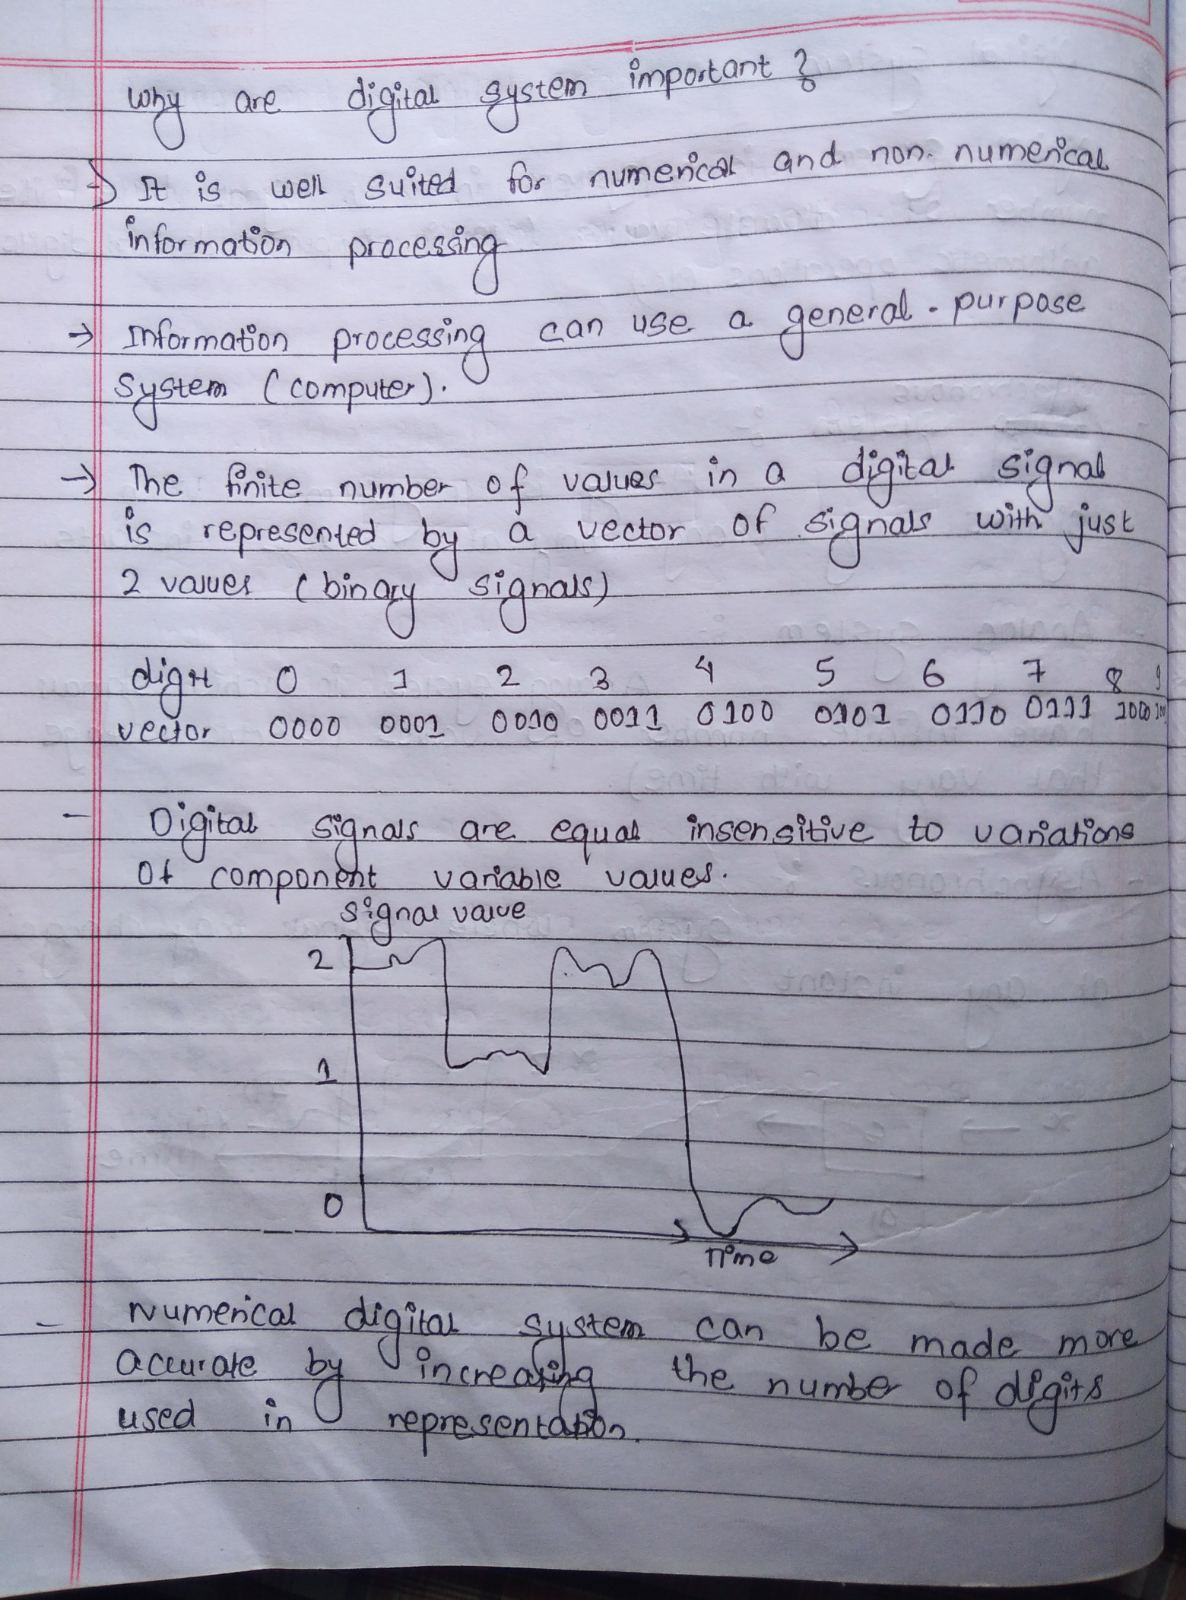 Why are digital system important ?
→ It is well suited for numerical and non-numerical
information processing
→ Information processing can use a general-purpose
System (computer).
→ The finite number of values in a digital signal
is represented by a vector of signals with just
2 values (binary signals)
digit 0 1 2 3 4 5 6 7 8 9
vector 0000 0001 0010 0011 0100 0101 0110 0111 1000
- Digital signals are equal insensitive to variations
of component variable values.
signal value
2
1
0
Time
- Numerical digital system can be made more
accurate by increasing the number of digits
used in representation.